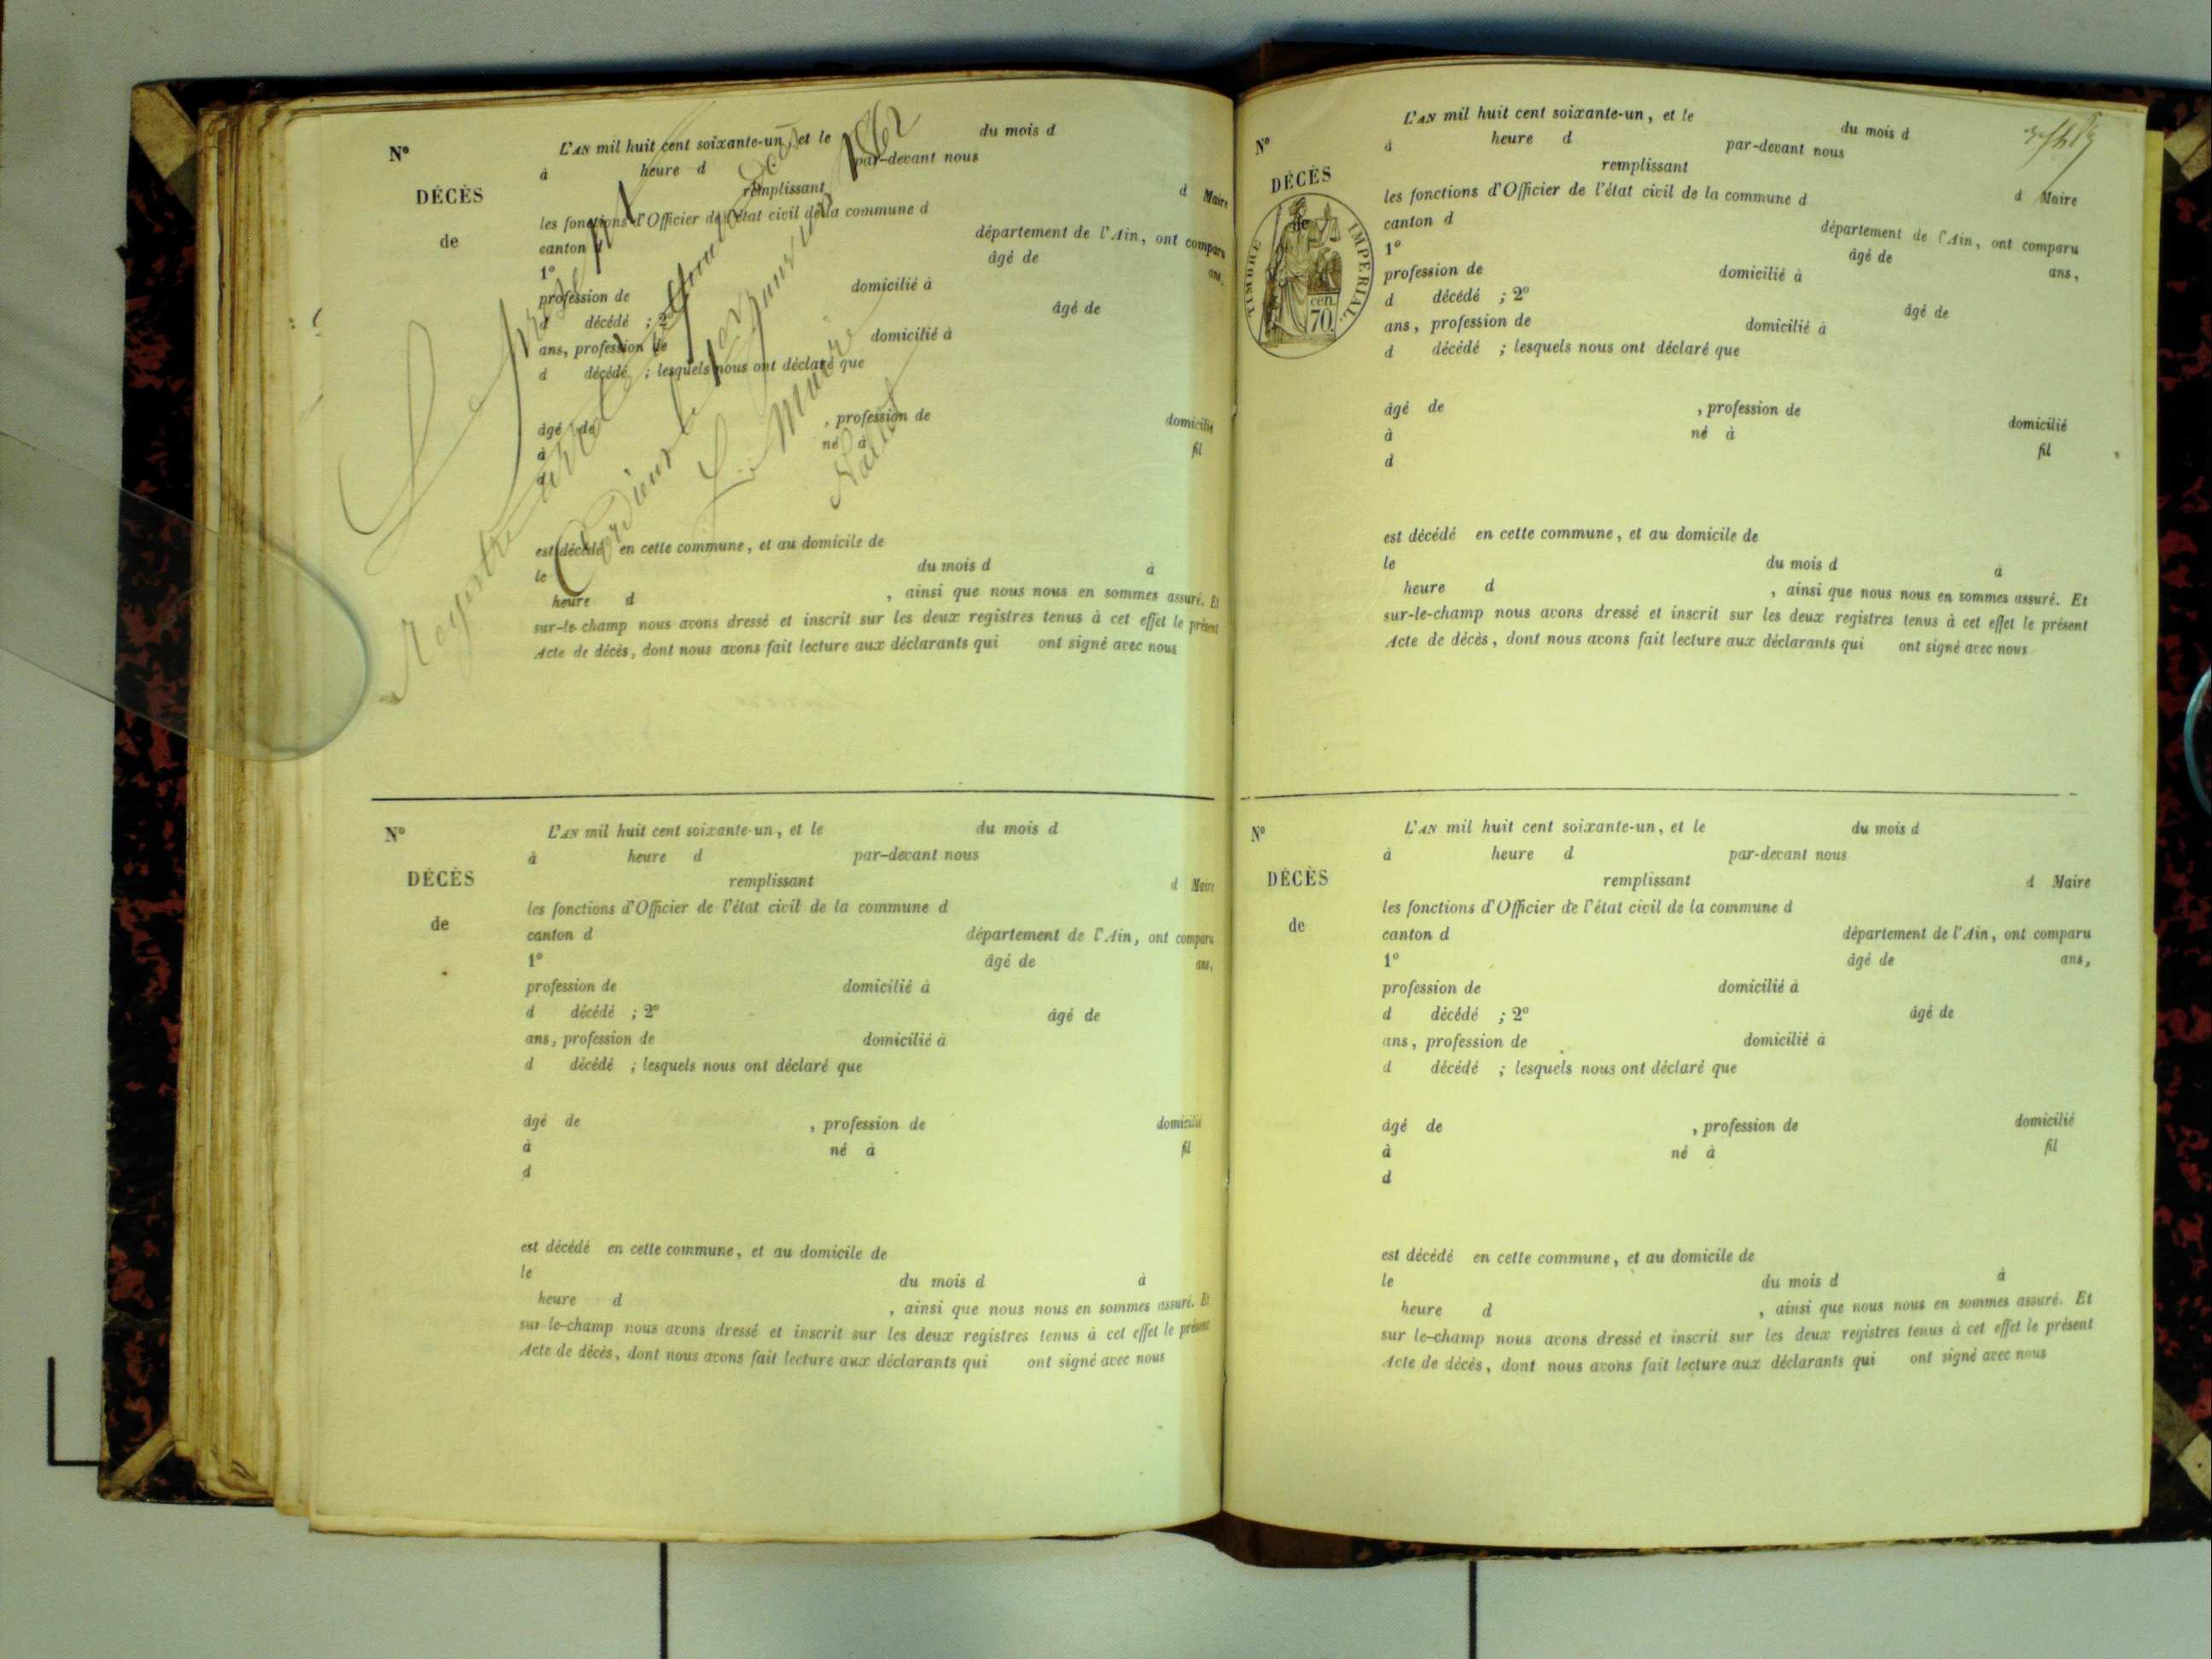 N° L'AN mil huit cent soixante-un, et le du mois d
à heure d par-devant nous
DÉCÈS remplissant d Maire
les fonctions d'Officier de l'état civil de la commune d
de canton d département de l'Ain, ont comparu
1° âgé de ans,
profession de domicilié à
d décédé ; 2° âgé de
ans, profession de domicilié à
d décédé ; lesquels nous ont déclaré que
âgé de , profession de domicilié
à né à fil
d
est décédé en cette commune, et au domicile de
le du mois d à
heure d , ainsi que nous nous en sommes assuré. Et
sur-le-champ nous avons dressé et inscrit sur les deux registres tenus à cet effet le présent
Acte de décès, dont nous avons fait lecture aux déclarants qui ont signé avec nous
Le
Cordieux le janvier 1862
Le Maire
N° L'AN mil huit cent soixante-un, et le du mois d
à heure d par-devant nous
DÉCÈS remplissant d Maire
les fonctions d'Officier de l'état civil de la commune d
de canton d département de l'Ain, ont comparu
1° âgé de ans,
profession de domicilié à
d décédé ; 2° âgé de
ans, profession de domicilié à
d décédé ; lesquels nous ont déclaré que
âgé de , profession de domicilié
à né à fil
d
est décédé en cette commune, et au domicile de
le du mois d à
heure d , ainsi que nous nous en sommes assuré. Et
sur le-champ nous avons dressé et inscrit sur les deux registres tenus à cet effet le présent
Acte de décès, dont nous avons fait lecture aux déclarants qui ont signé avec nous
N° L'AN mil huit cent soixante-un, et le du mois d
à heure d par-devant nous
DÉCÈS remplissant d Maire
les fonctions d'Officier de l'état civil de la commune d
de canton d département de l'Ain, ont comparu
TIMBRE IMPÉRIAL.
cen.
70
1° âgé de ans,
profession de domicilié à
d décédé ; 2° âgé de
ans, profession de domicilié à
d décédé ; lesquels nous ont déclaré que
âgé de , profession de domicilié
à né à fil
d
est décédé en cette commune, et au domicile de
le du mois d à
heure d , ainsi que nous nous en sommes assuré. Et
sur-le-champ nous avons dressé et inscrit sur les deux registres tenus à cet effet le présent
Acte de décès, dont nous avons fait lecture aux déclarants qui ont signé avec nous
N° L'AN mil huit cent soixante-un, et le du mois d
à heure d par-devant nous
DÉCÈS remplissant d Maire
les fonctions d'Officier de l'état civil de la commune d
de canton d département de l'Ain, ont comparu
1° âgé de ans,
profession de domicilié à
d décédé ; 2° âgé de
ans, profession de domicilié à
d décédé ; lesquels nous ont déclaré que
âgé de , profession de domicilié
à né à fil
d
est décédé en cette commune, et au domicile de
le du mois d à
heure d , ainsi que nous nous en sommes assuré. Et
sur le-champ nous avons dressé et inscrit sur les deux registres tenus à cet effet le présent
Acte de décès, dont nous avons fait lecture aux déclarants qui ont signé avec nous